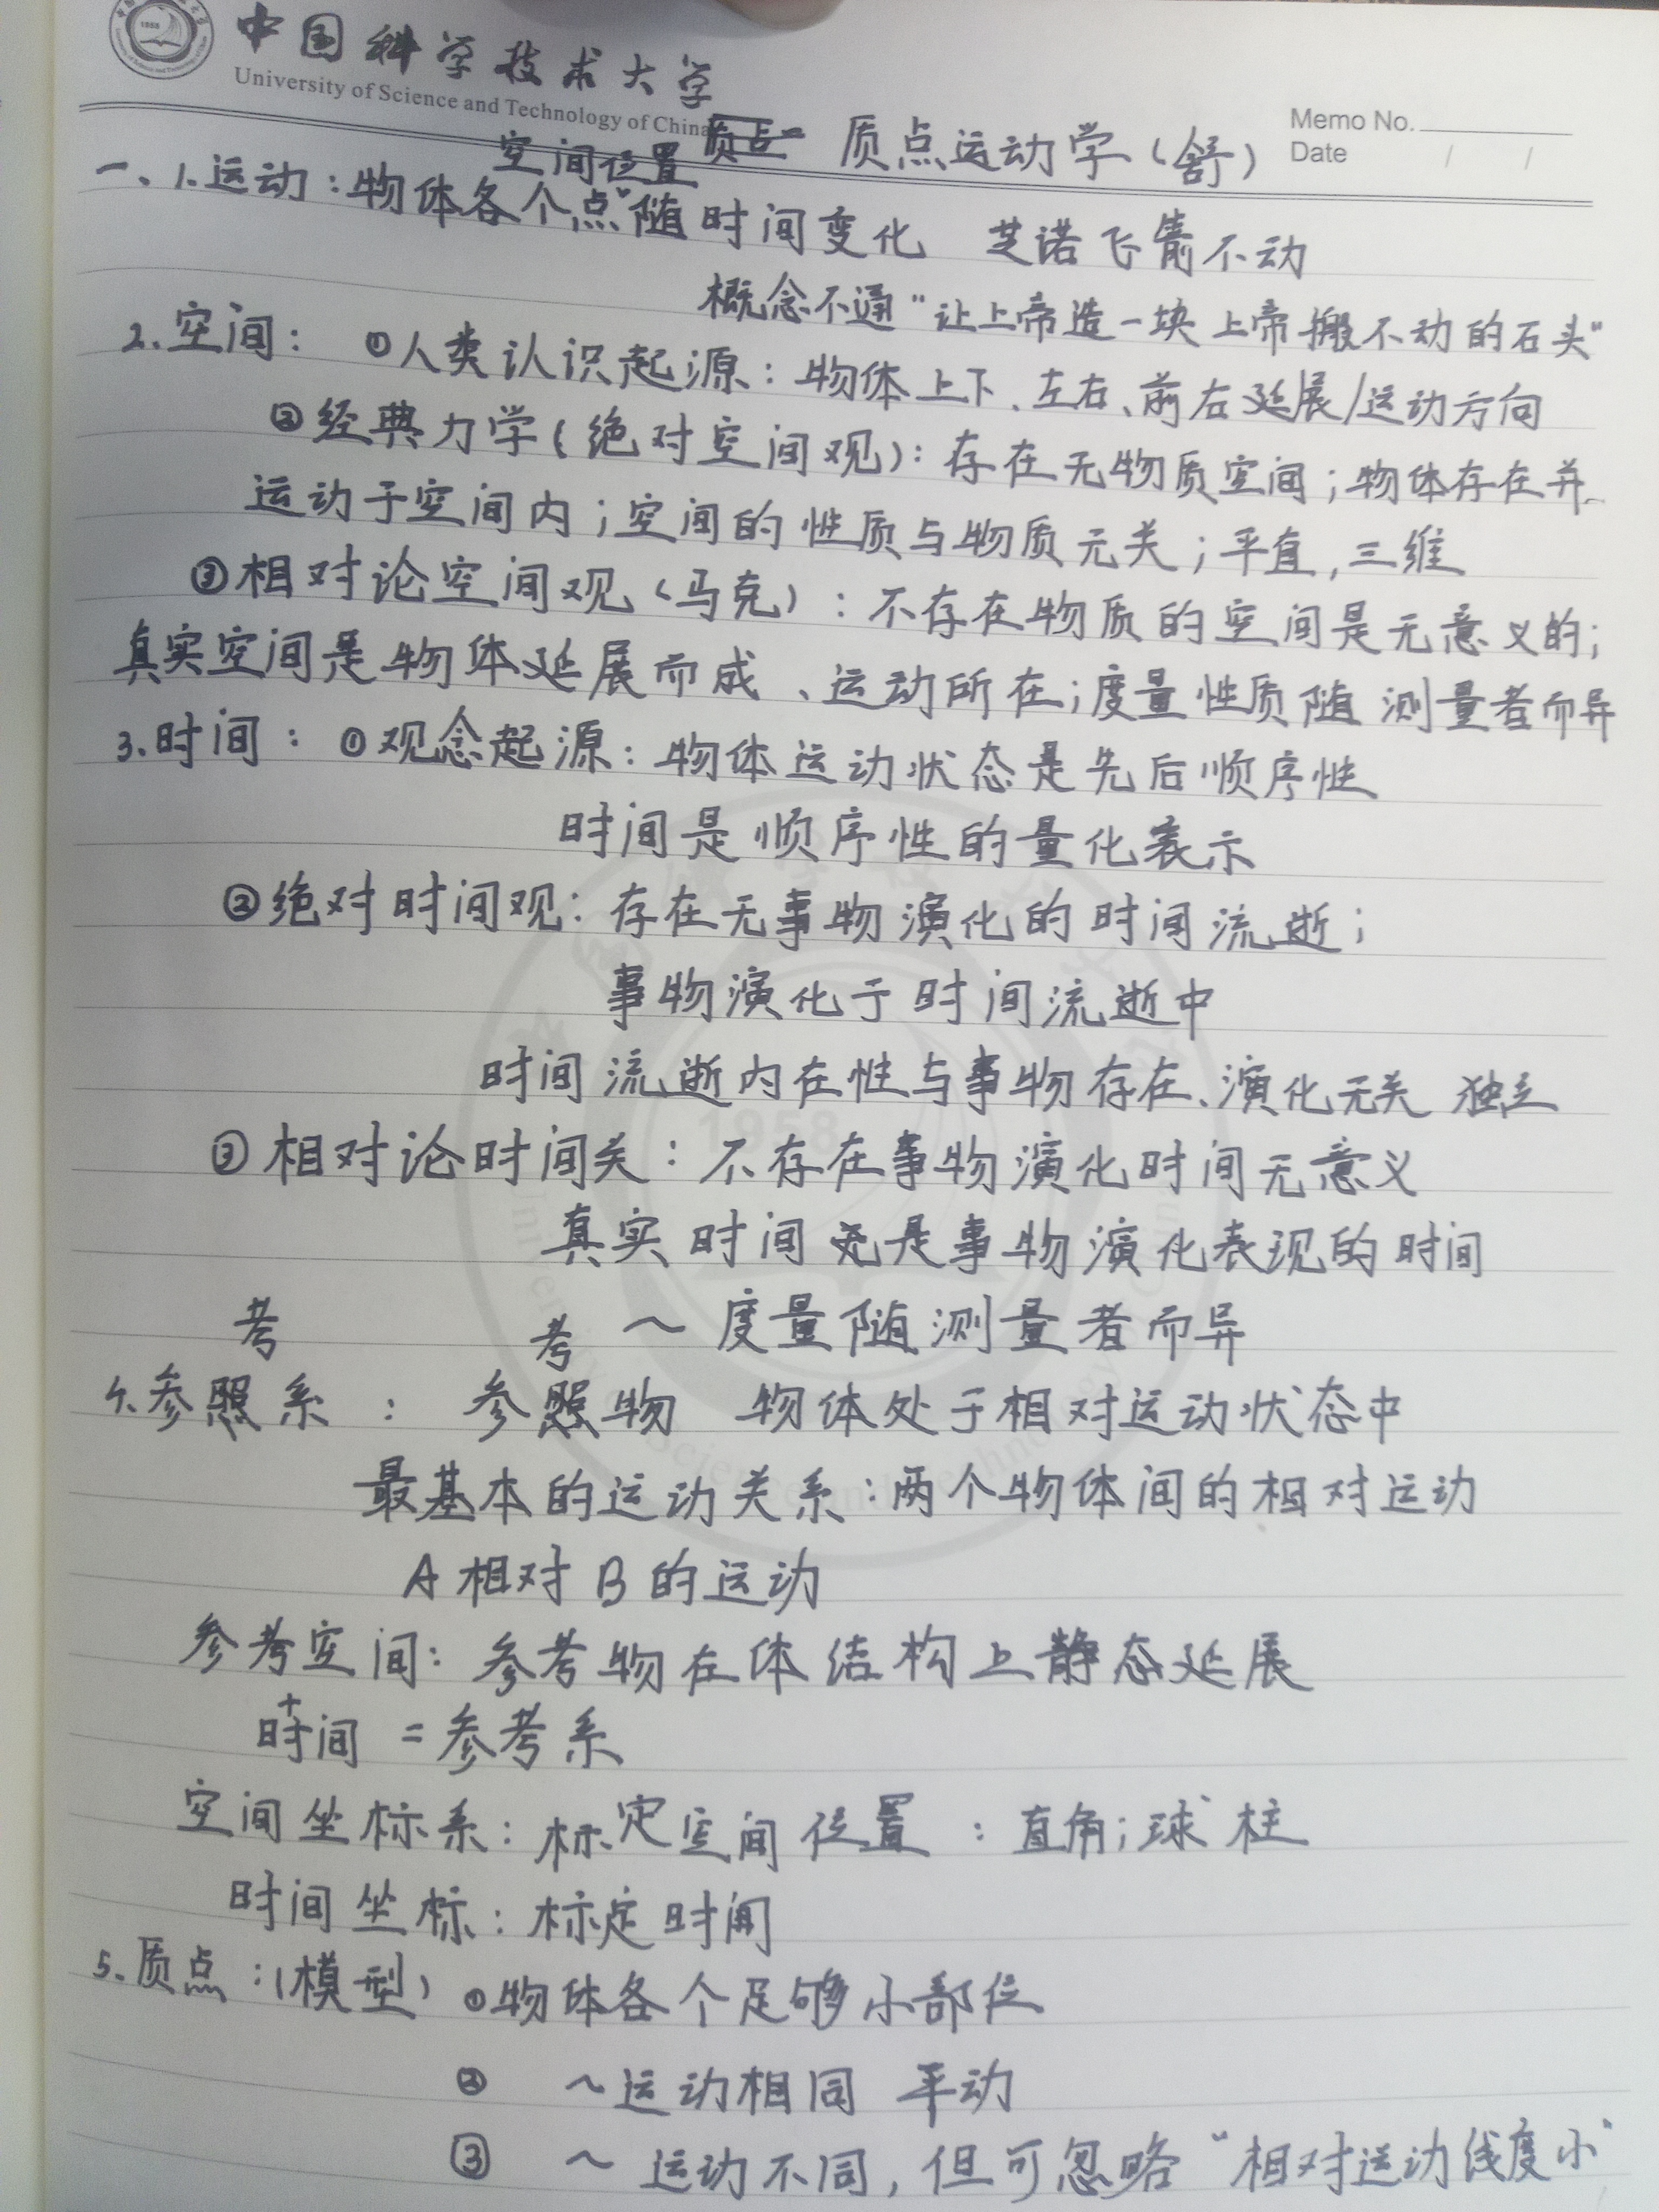 中国科学技术大学
University of Science and Technology of China
Memo No.
Date / /
质点运动学（舒）
空间位置
一、1.运动：物体各个“点”随时间变化 芝诺飞箭不动
概念不通“让上帝造一块上帝搬不动的石头”
2.空间： ①人类认识起源：物体上下、左右、前右延展/运动方向
②经典力学(绝对空间观)：存在无物质空间；物体存在并
运动于空间内；空间的性质与物质无关；平直，三维
③相对论空间观（马克）：不存在物质的空间是无意义的；
真实空间是物体延展而成、运动所在；度量性质随测量者而异
3.时间：①观念起源：物体运动状态是先后顺序性
时间是顺序性的量化表示
②绝对时间观：存在无事物演化的时间流逝；
事物演化于时间流逝中
时间流逝内在性与事物存在、演化无关 独立
③相对论时间关：不存在事物演化时间无意义
真实时间是事物演化表现的时间
～度量随测量者而异
考 考
4.参照系： 参照物 物体处于相对运动状态中
最基本的运动关系：两个物体间的相对运动
A相对B的运动
参考空间：参考物在体结构上静态延展
+
时间 =参考系
空间坐标系：标定空间位置：直角；球 柱
时间坐标：标定时间
5.质点：（模型）①物体各个足够小部位
② ～运动相同 平动
③ ～运动不同，但可忽略“相对运动线度小”